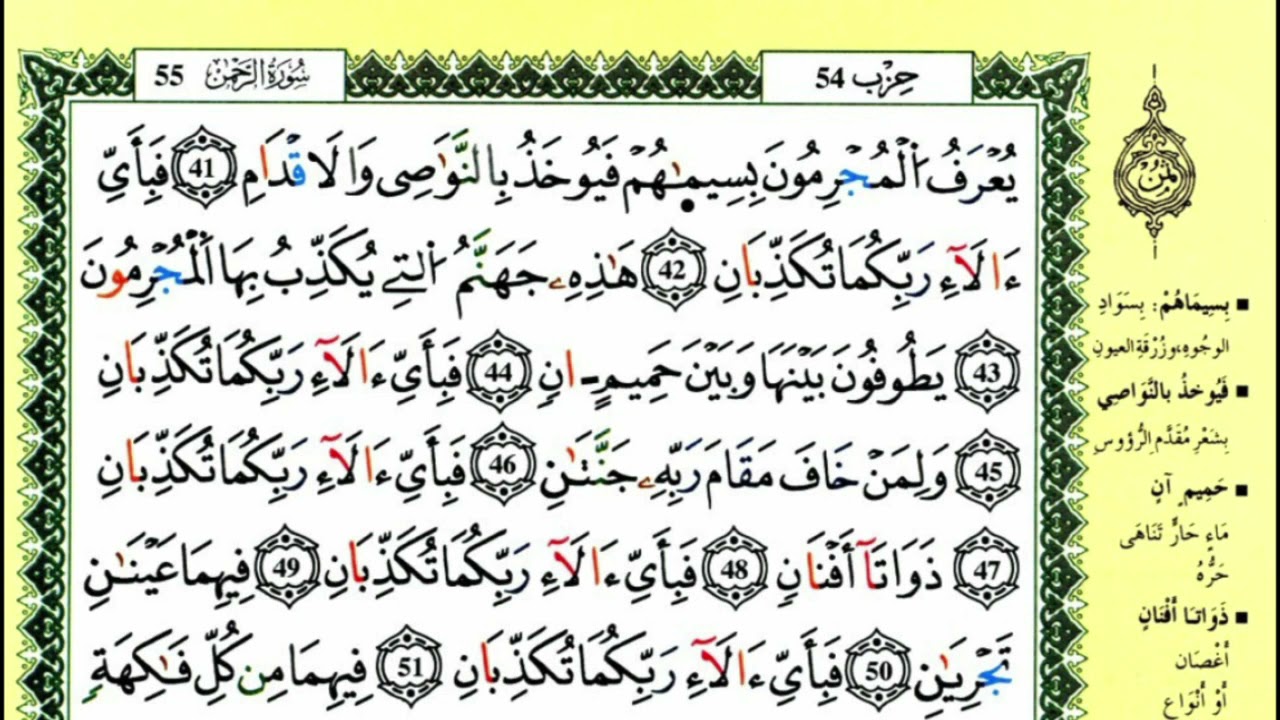 حِزْب 54
سُورَةُ الرَّحْمَٰن 55
يُعْرَفُ اُ۬لْمُجْرِمُونَ بِسِيمَٰهُمْ فَيُوخَذُ بِالنَّوَٰصِى وَالَاقْدَامِ 41 فَبِأَىِّ
ءَالَآءِ رَبِّكُمَا تُكَذِّبَانِ 42 هَٰذِهِۦ جَهَنَّمُ اُ۬لتِے يُكَذِّبُ بِهَا اَ۬لْمُجْرِمُونَ
43 يَطُوفُونَ بَيْنَهَا وَبَيْنَ حَمِيمٍ ـ انٍ 44 فَبِأَىِّ ءَالَآءِ رَبِّكُمَا تُكَذِّبَانِ
45 وَلِمَنْ خَافَ مَقَامَ رَبِّهِۦ جَنَّتَٰنِ 46 فَبِأَىِّ ءَالَآءِ رَبِّكُمَا تُكَذِّبَانِ
47 ذَوَاتَآ أَفْنَانٍ 48 فَبِأَىِّ ءَالَآءِ رَبِّكُمَا تُكَذِّبَانِ 49 فِيهِمَا عَيْنَٰنِ
تَجْرِيَٰنِ 50 فَبِأَىِّ ءَالَآءِ رَبِّكُمَا تُكَذِّبَانِ 51 فِيهِمَا مِن كُلِّ فَٰكِهَةٍ
■ بِسِيمَاهُمْ: بِسَوَادِ
الوجُوهِ، وزُرْقَةِ العيونِ
■ فَيُوخذُ بالنَّوَاصِي
بِشَعْرِ مُقَدَّمِ الرُّؤوسِ
■ حَمِيمٍ آنٍ
مَاءٍ حَارٍّ تَنَاهَى
حَرُّهُ
■ ذَوَاتَا أَفْنَانٍ
أَغْصَان
أَوْ أَنْوَاعٍ